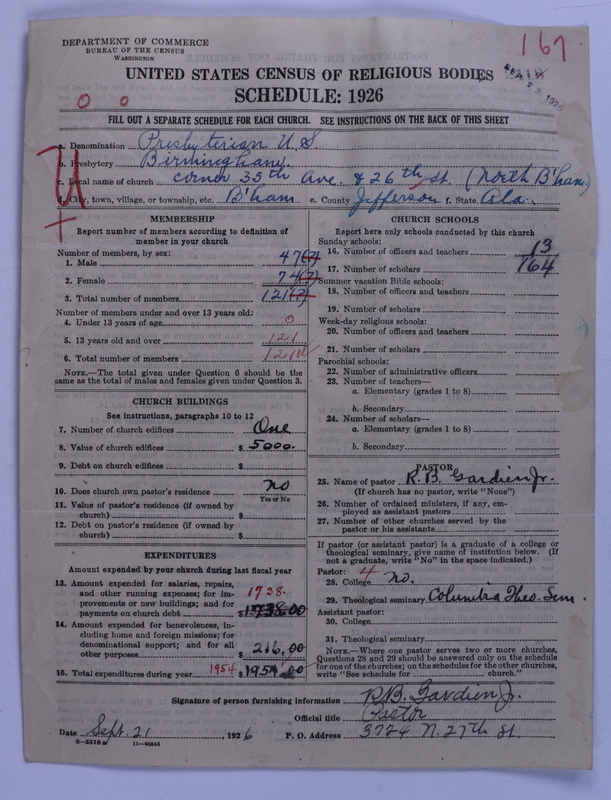 DEPARTMENT OF COMMERCE
BUREAU OF THE CENSUS
WASHINGTON
167
UNITED STATES CENSUS OF RELIGIOUS BODIES
SCHEDULE: 1926
0 0
FILL OUT A SEPARATE SCHEDULE FOR EACH CHURCH. SEE INSTRUCTIONS ON THE BACK OF THIS SHEET
a. Denomination Presbyterian U S
b. Presbytery Birmingham
c. Local name of church corner 35th Ave. & 26th st. (North B'ham)
d. City, town, village, or township, etc. B'ham e. County Jefferson f. State Ala.
MEMBERSHIP
Report number of members according to definition of
member in your church
Number of members, by sex:
1. Male 47(?)
2. Female 74(?)
3. Total number of members 121(?)
Number of members under and over 13 years old:
4. Under 13 years of age 0
5. 13 years old and over 121
6. Total number of members 121
NOTE.—The total given under Question 6 should be
same as the total of males and females given under Question 3.
CHURCH BUILDINGS
See instructions, paragraphs 10 to 12
7. Number of church edifices One
8. Value of church edifices $ 5000.
9. Debt on church edifices $
10. Does church own pastor's residence no
Yes or No
11. Value of pastor's residence (if owned by
church) $
12. Debt on pastor's residence (if owned by
church) $
EXPENDITURES
Amount expended by your church during last fiscal year
13. Amount expended for salaries, repairs,
and other running expenses; for im-
provements or new buildings; and for
payments on church debt 1738. $ 1738.00
14. Amount expended for benevolences, in-
cluding home and foreign missions; for
denominational support; and for all
other purposes $ 216.00
15. Total expenditures during year 1954 $ 1954.00
CHURCH SCHOOLS
Report here only schools conducted by this church
Sunday schools:
16. Number of officers and teachers 13
17. Number of scholars 164
Summer vacation Bible schools:
18. Number of officers and teachers
19. Number of scholars
Week-day religious schools:
20. Number of officers and teachers
21. Number of scholars
Parochial schools:
22. Number of administrative officers
23. Number of teachers—
a. Elementary (grades 1 to 8)
b. Secondary
24. Number of scholars—
a. Elementary (grades 1 to 8)
b. Secondary
PASTOR
25. Name of pastor R. B. Gardien Jr.
(If church has no pastor, write "None")
26. Number of ordained ministers, if any, em-
ployed as assistant pastors
27. Number of other churches served by the
pastor or his assistants
If pastor (or assistant pastor) is a graduate of a college or
theological seminary, give name of institution below. (If
not a graduate, write "No" in the space indicated.)
Pastor: 4
28. College no.
29. Theological seminary Columbia Theo. Sem.
Assistant pastor:
30. College
31. Theological seminary
NOTE.—Where one pastor serves two or more churches,
Questions 28 and 29 should be answered only on the schedule
for one of the churches; on the schedules for the other churches,
write "See schedule for church."
Signature of person furnishing information R. B. Gardien Jr.
Official title Pastor
Date Sept. 21, 1926 P. O. Address 3724 N. 27th St.